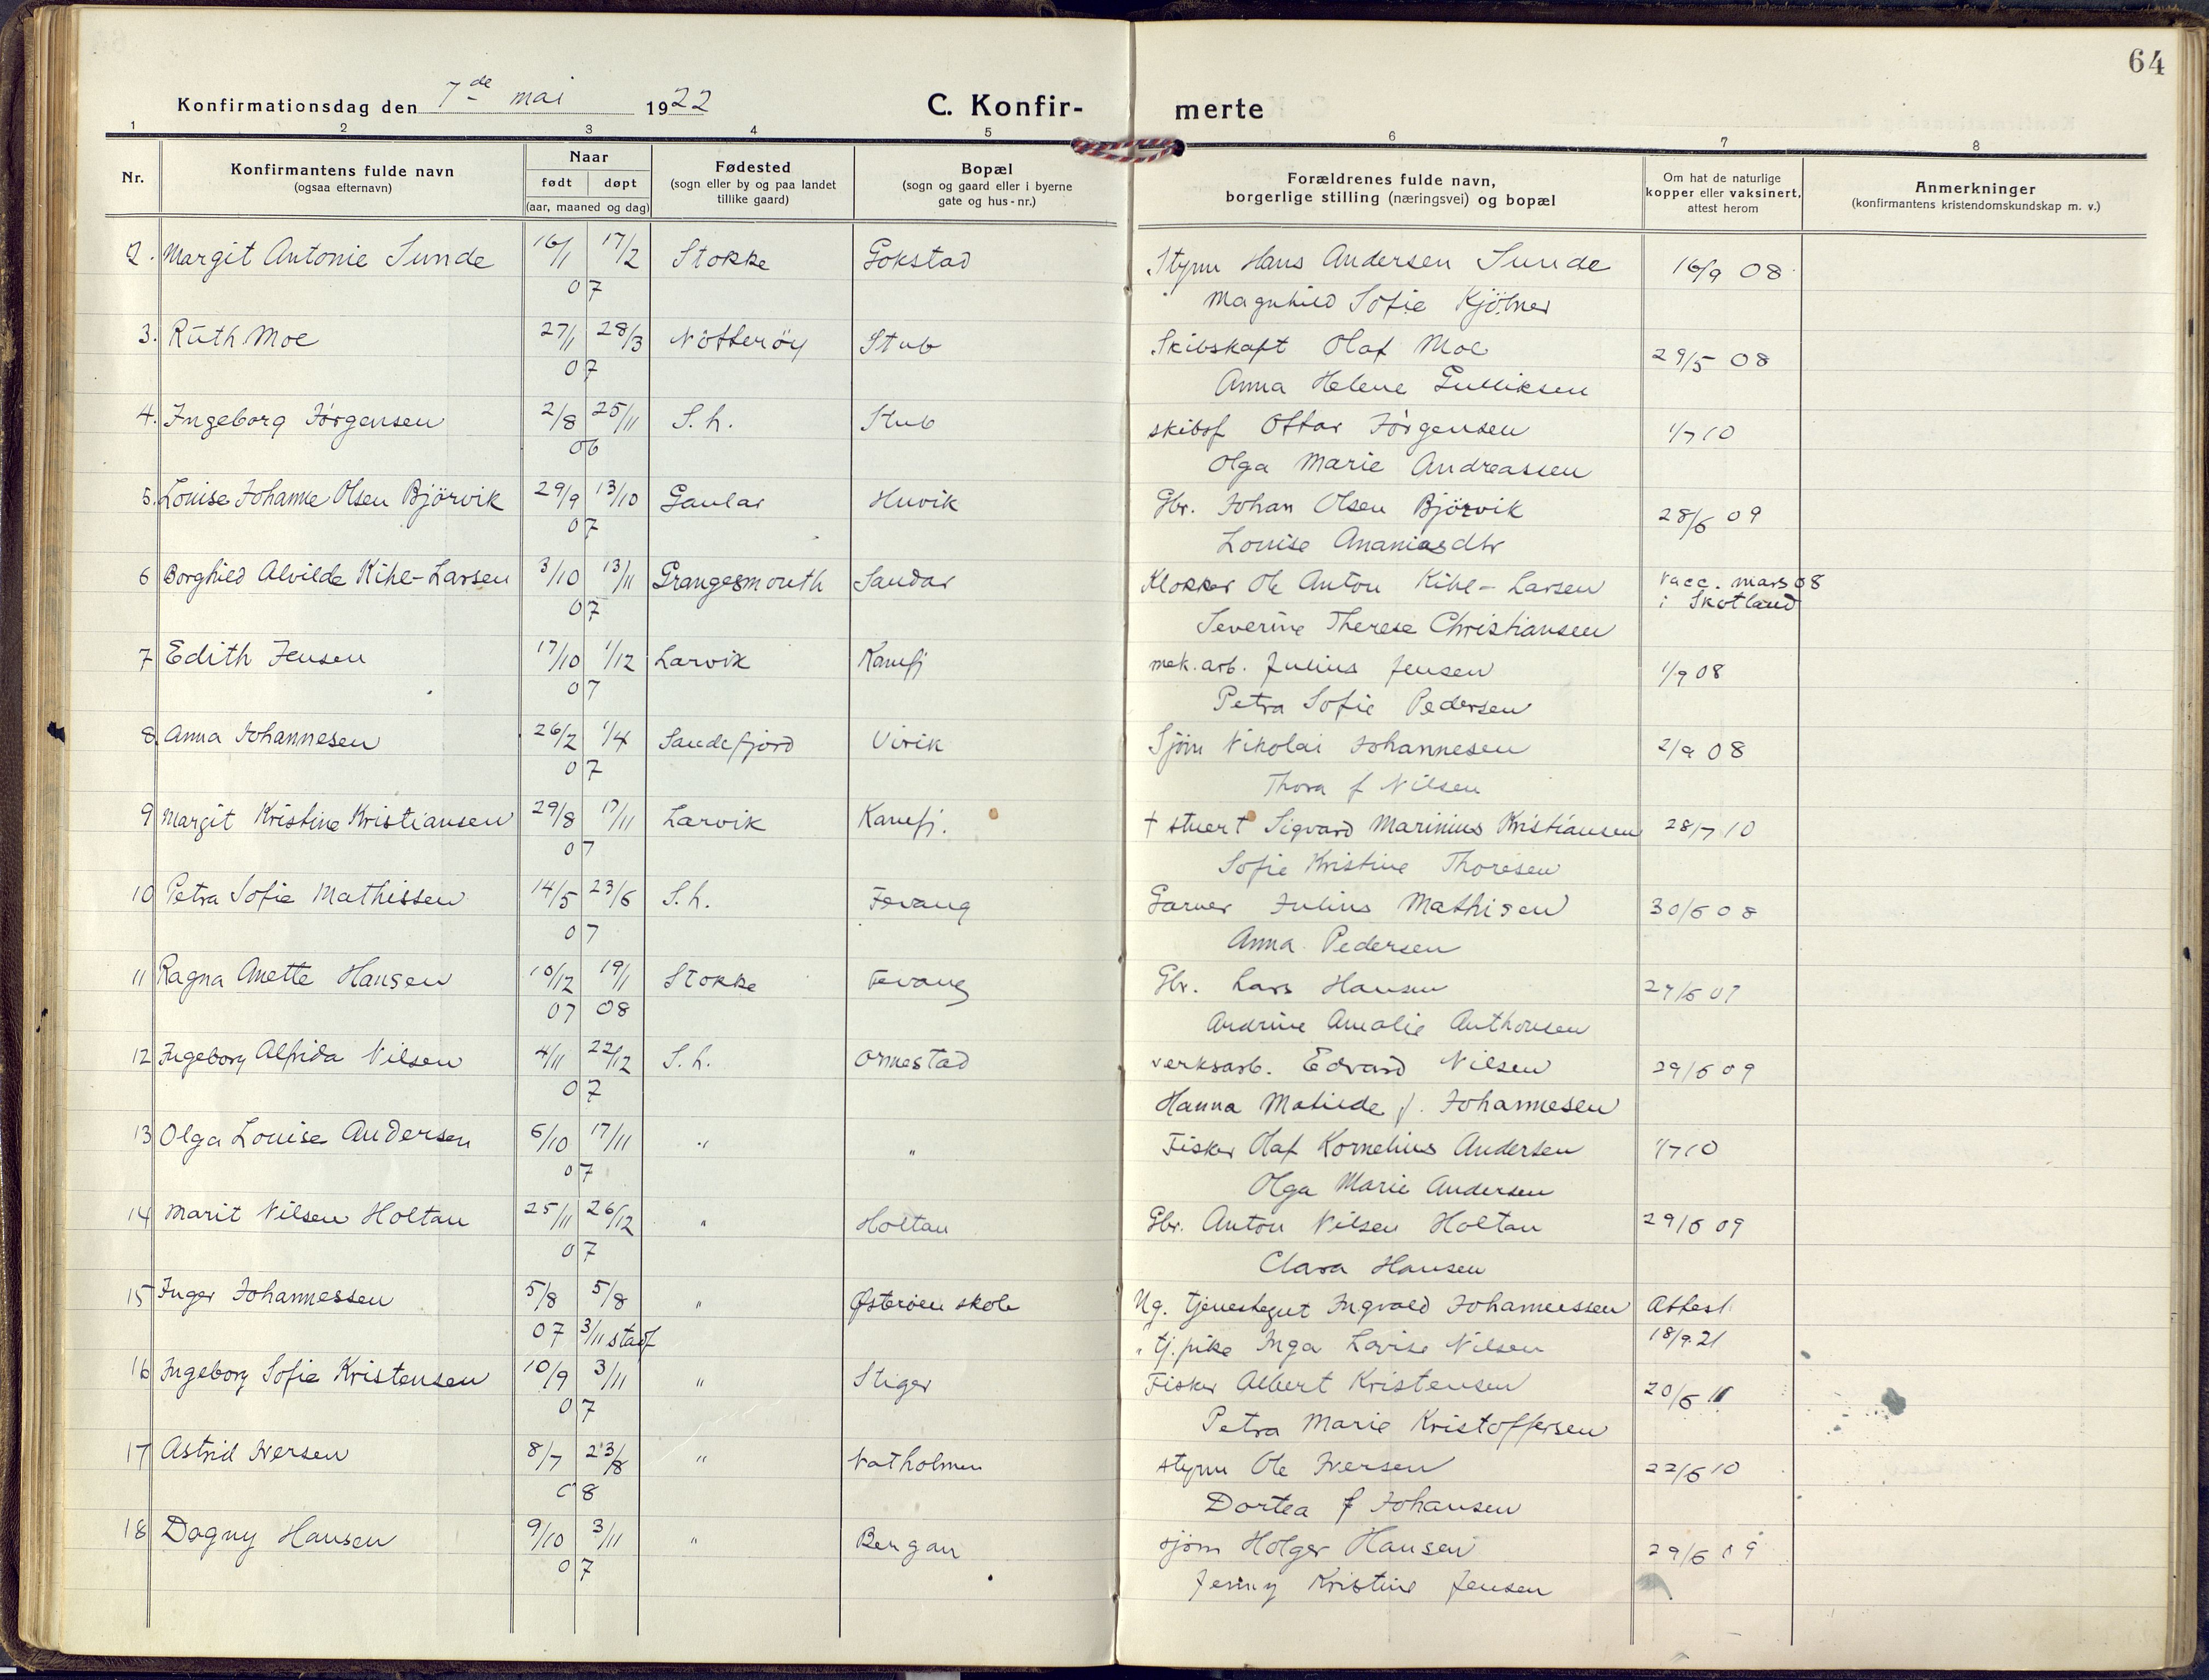 64
Konfirmationsdag den 7de mai 1922 C. Konfir- merte
1 2 3 4 5 6 7 8
Nr. Konfirmantens fulde navn (ogsaa efternavn) Naar født døpt (aar, maaned og dag) Fødested (sogn eller by og paa landet tillike gaard) Bopæl (sogn og gaard eller i byerne gate og hus-nr.) Forældrenes fulde navn, borgerlige stilling (næringsvei) og bopæl Om hat de naturlige kopper eller vaksinert, attest herom Anmerkninger (konfirmantens kristendomskundskap m. v.)
2. Margit Antonie Sunde 16/1 17/2 Stokke Gokstad Styrm Hans Andersen Sunde 16/9 08
07 Magnhild Sofie
3. Ruth Moe 27/1 28/3 Nötterøy Stub Skibskapt Olaf Moe 29/5 08
07 Anna Helene Gulliksen
4. Ingeborg Jörgensen 2/8 25/11 S. h. Stub skibsf Ottar Jörgensen 1/7 10
06 Olga Marie Andreassen
5. Louise Johanne Olsen Björvik 29/9 13/10 Gaular Huvik Gbr. Johan Olsen Björvik 28/6 09
07 Louise Ananiasdtr
6 Borghild Alvilde Kihl-Larsen 3/10 13/11 Grangesmouth Sandar Klokker Ole Anton Kihl-Larsen vacc. mars 08
07 Severine Therese Christiansen i Skotland
7 Edith Jensen 17/10 1/12 Larvik Kamfj mek. arb. Julius Jensen 1/9 08
07 Petra Sofie Pedersen
8. Anna Johannesen 26/2 1/4 Sandefjord Virik Sjöm Nikolai Johannesen 2/9 08
07 Thora f Nilsen
9 Margit Kristine Kristiansen 29/8 17/11 Larvik Kamfj. † stuert Sigvard Marinius Kristiansen 28/7 10
07 Sofie Kristine Thoresen
10 Petra Sofie Mathissen 14/5 23/6 S. h. Fevang Garver Julius Mathisen 30/6 08
07 Anna Pedersen
11 Ragna Anette Hansen 10/12 19/1 Stokke Fevang Gbr. Lars Hansen
07 08 Andrine Amalie Anthonsen
12 Ingeborg Alfrida Nilsen 4/11 22/12 S. h. Ormestad verksarb. Edvard Nilsen 29/6 09
07 Hanna Matilde f. Johannesen
13 Olga Louise Andersen 6/10 17/11 " " Fisker Olaf Kornelius Andersen 1/7 10
07 Olga Marie Andersen
14 Marit Nilsen Holtan 25/11 26/12 " Holtan Gbr. Anton Nilsen Holtan 29/6 09
07 Clara Hansen
15 Inger Johannessen 5/8 5/8 " Østerøen skole Ug. tjenestegut Ingvald Johannessen Attest
07 3/11 stadf " tj. pike Inga Lovise Nilsen 18/9 21
16 Ingeborg Sofie Kristensen 10/9 3/11 " Stiger Fisker Albert Kristensen 20/6 11
07 Petra Marie Kristoffersen
17 Astrid Iversen 8/7 23/8 " Natholmen styrm Ole Iversen 22/6 10
08 Dortea f Johansen
18 Dagny Hansen 9/10 3/11 " Bergan sjöm Holger Hansen 29/6 09
07 Jenny Kristine Jensen